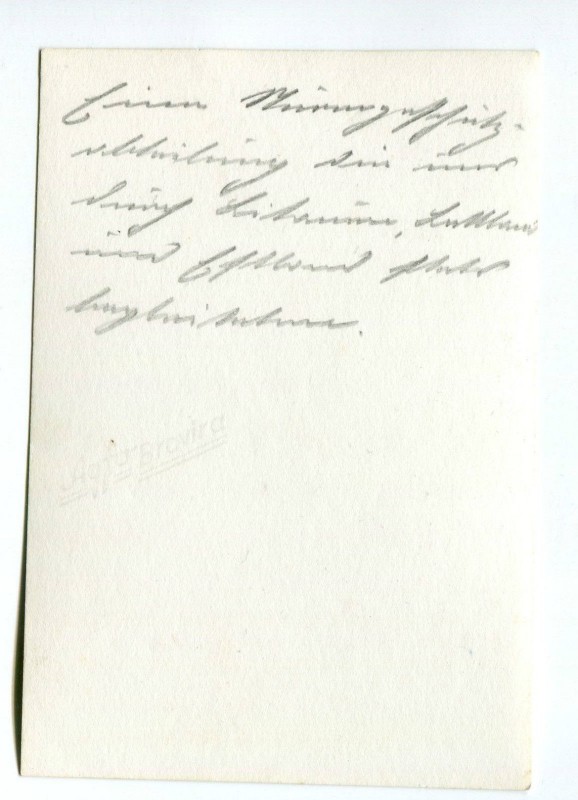 Eine Sturmgeschütz-
abteilung die uns
durch Litauen, Lettland
und Estland stets
begleitete.
Agfa Brovira